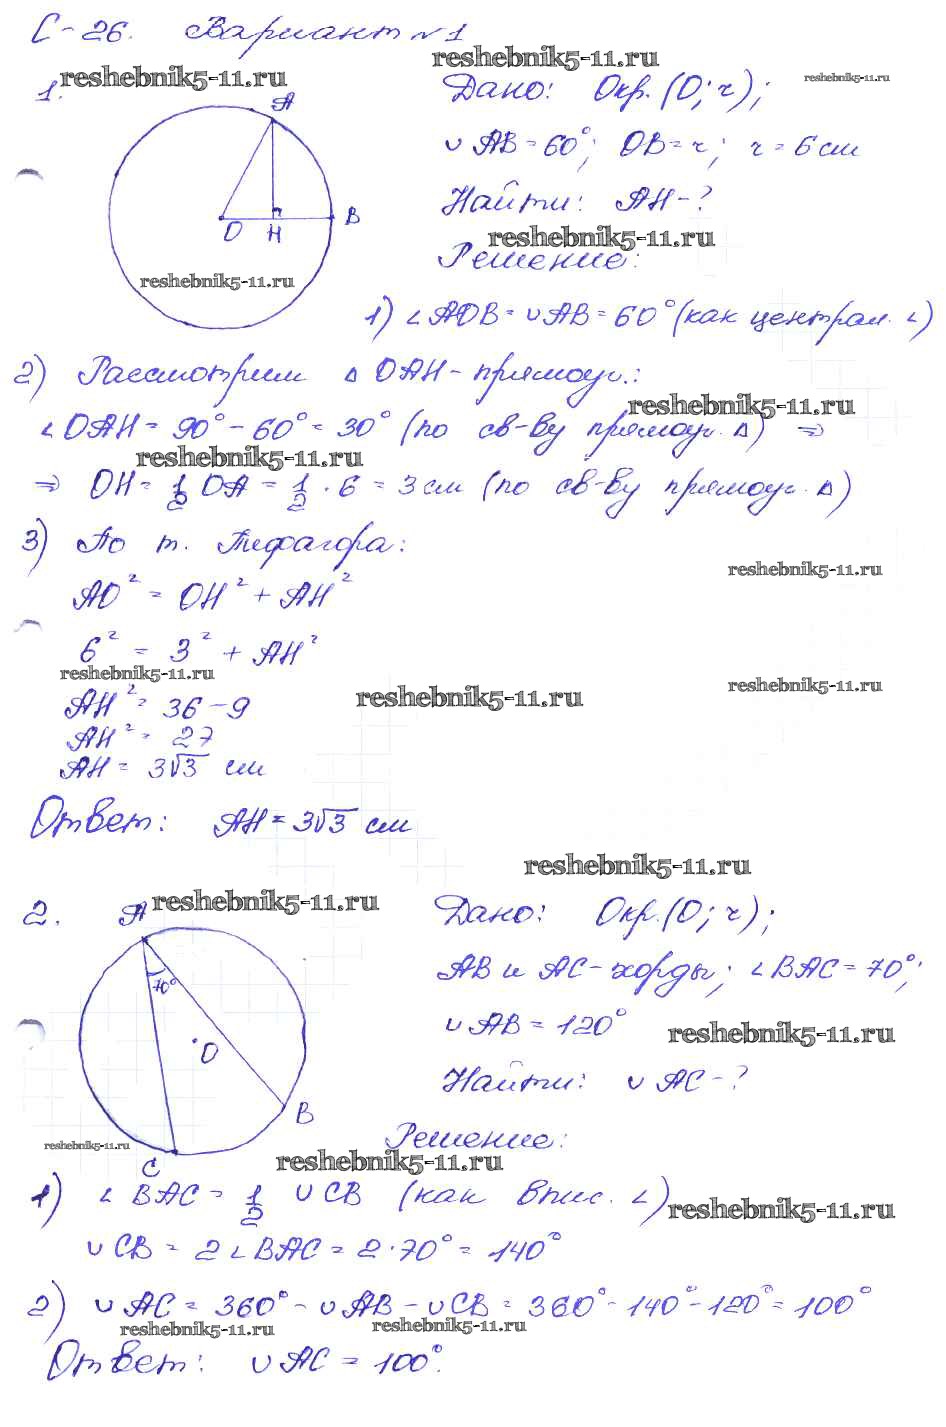 С-26. Вариант №1
reshebnik5-11.ru
reshebnik5-11.ru
reshebnik5-11.ru
1.
A
O
H
B
reshebnik5-11.ru
Дано: Окр.(O; r);
∪ AB = 60°; OB = r; r = 6 см
Найти: AH - ?
reshebnik5-11.ru
Решение:
1) ∠AOB = ∪AB = 60° (как централ. ∠)
2) Рассмотрим △ OAH - прямоуг.:
reshebnik5-11.ru
∠OAH = 90° - 60° = 30° (по св-ву прямоуг. △) ⇒
reshebnik5-11.ru
⇒ OH = 1/2 OA = 1/2 · 6 = 3 см (по св-ву прямоуг. △)
3) По т. Пифагора:
reshebnik5-11.ru
AO² = OH² + AH²
6² = 3² + AH²
reshebnik5-11.ru
reshebnik5-11.ru
reshebnik5-11.ru
AH² = 36 - 9
AH² = 27
AH = 3√3 см
Ответ: AH = 3√3 см
reshebnik5-11.ru
2.
A
reshebnik5-11.ru
70°
O
B
C
reshebnik5-11.ru
Дано: Окр.(O; r);
AB и AC - хорды; ∠BAC = 70°;
∪ AB = 120°
reshebnik5-11.ru
Найти: ∪ AC - ?
Решение:
reshebnik5-11.ru
1) ∠ BAC = 1/2 ∪ CB (как впис. ∠)
reshebnik5-11.ru
∪ CB = 2∠BAC = 2·70° = 140°
2) ∪ AC = 360° - ∪ AB - ∪ CB = 360° - 140° - 120° = 100°
reshebnik5-11.ru
reshebnik5-11.ru
Ответ: ∪ AC = 100°.